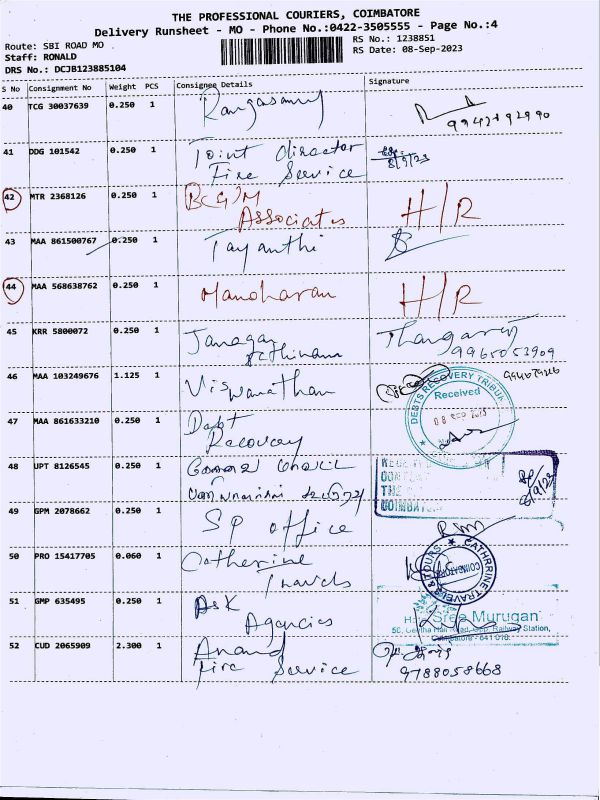 THE PROFESSIONAL COURIERS, COIMBATORE
Delivery Runsheet - MO - Phone No.:0422-3505555 - Page No.:4
Route: SBI ROAD MO
RS No.: 1238851
Staff: RONALD
RS Date: 08-Sep-2023
DRS No.: DCJB123885104
S No Consignment No Weight PCS Consignee Details Signature
40 TCG 30037639 0.250 1 Rangasamy
9942192990
41 DDG 101542 0.250 1 Joint director
Fire Service 8/9/23
42 MTR 2368126 0.250 1 BCGM H/R
Associates
43 MAA 861500767 0.250 1 Jayanthi
44 MAA 568638762 0.250 1 Manoharan H/R
45 KRR 5800072 0.250 1 Janaga Thangaraj
rathinam 9965053909
46 MAA 103249676 1.125 1 Viswanathan
DEBTS RECOVERY TRIBUNAL
Received
08 SEP 2023
47 MAA 861633210 0.250 1 Dept
Recovery
48 UPT 8126545 0.250 1
THE
COIMBATORE
8/9/23
49 GPM 2078662 0.250 1 SP office
50 PRO 15417705 0.060 1 Catherine
Travels
CATHRRINE TRAVELS & TOURS
COIMBATORE
51 GMP 635495 0.250 1 ASK
Agencies
Hotel Sree Murugan
50, Geetha Hall Road, Opp. Railway Station,
Coimbatore - 641 018.
52 CUD 2065909 2.300 1 Anand
Fire Service 9788058668